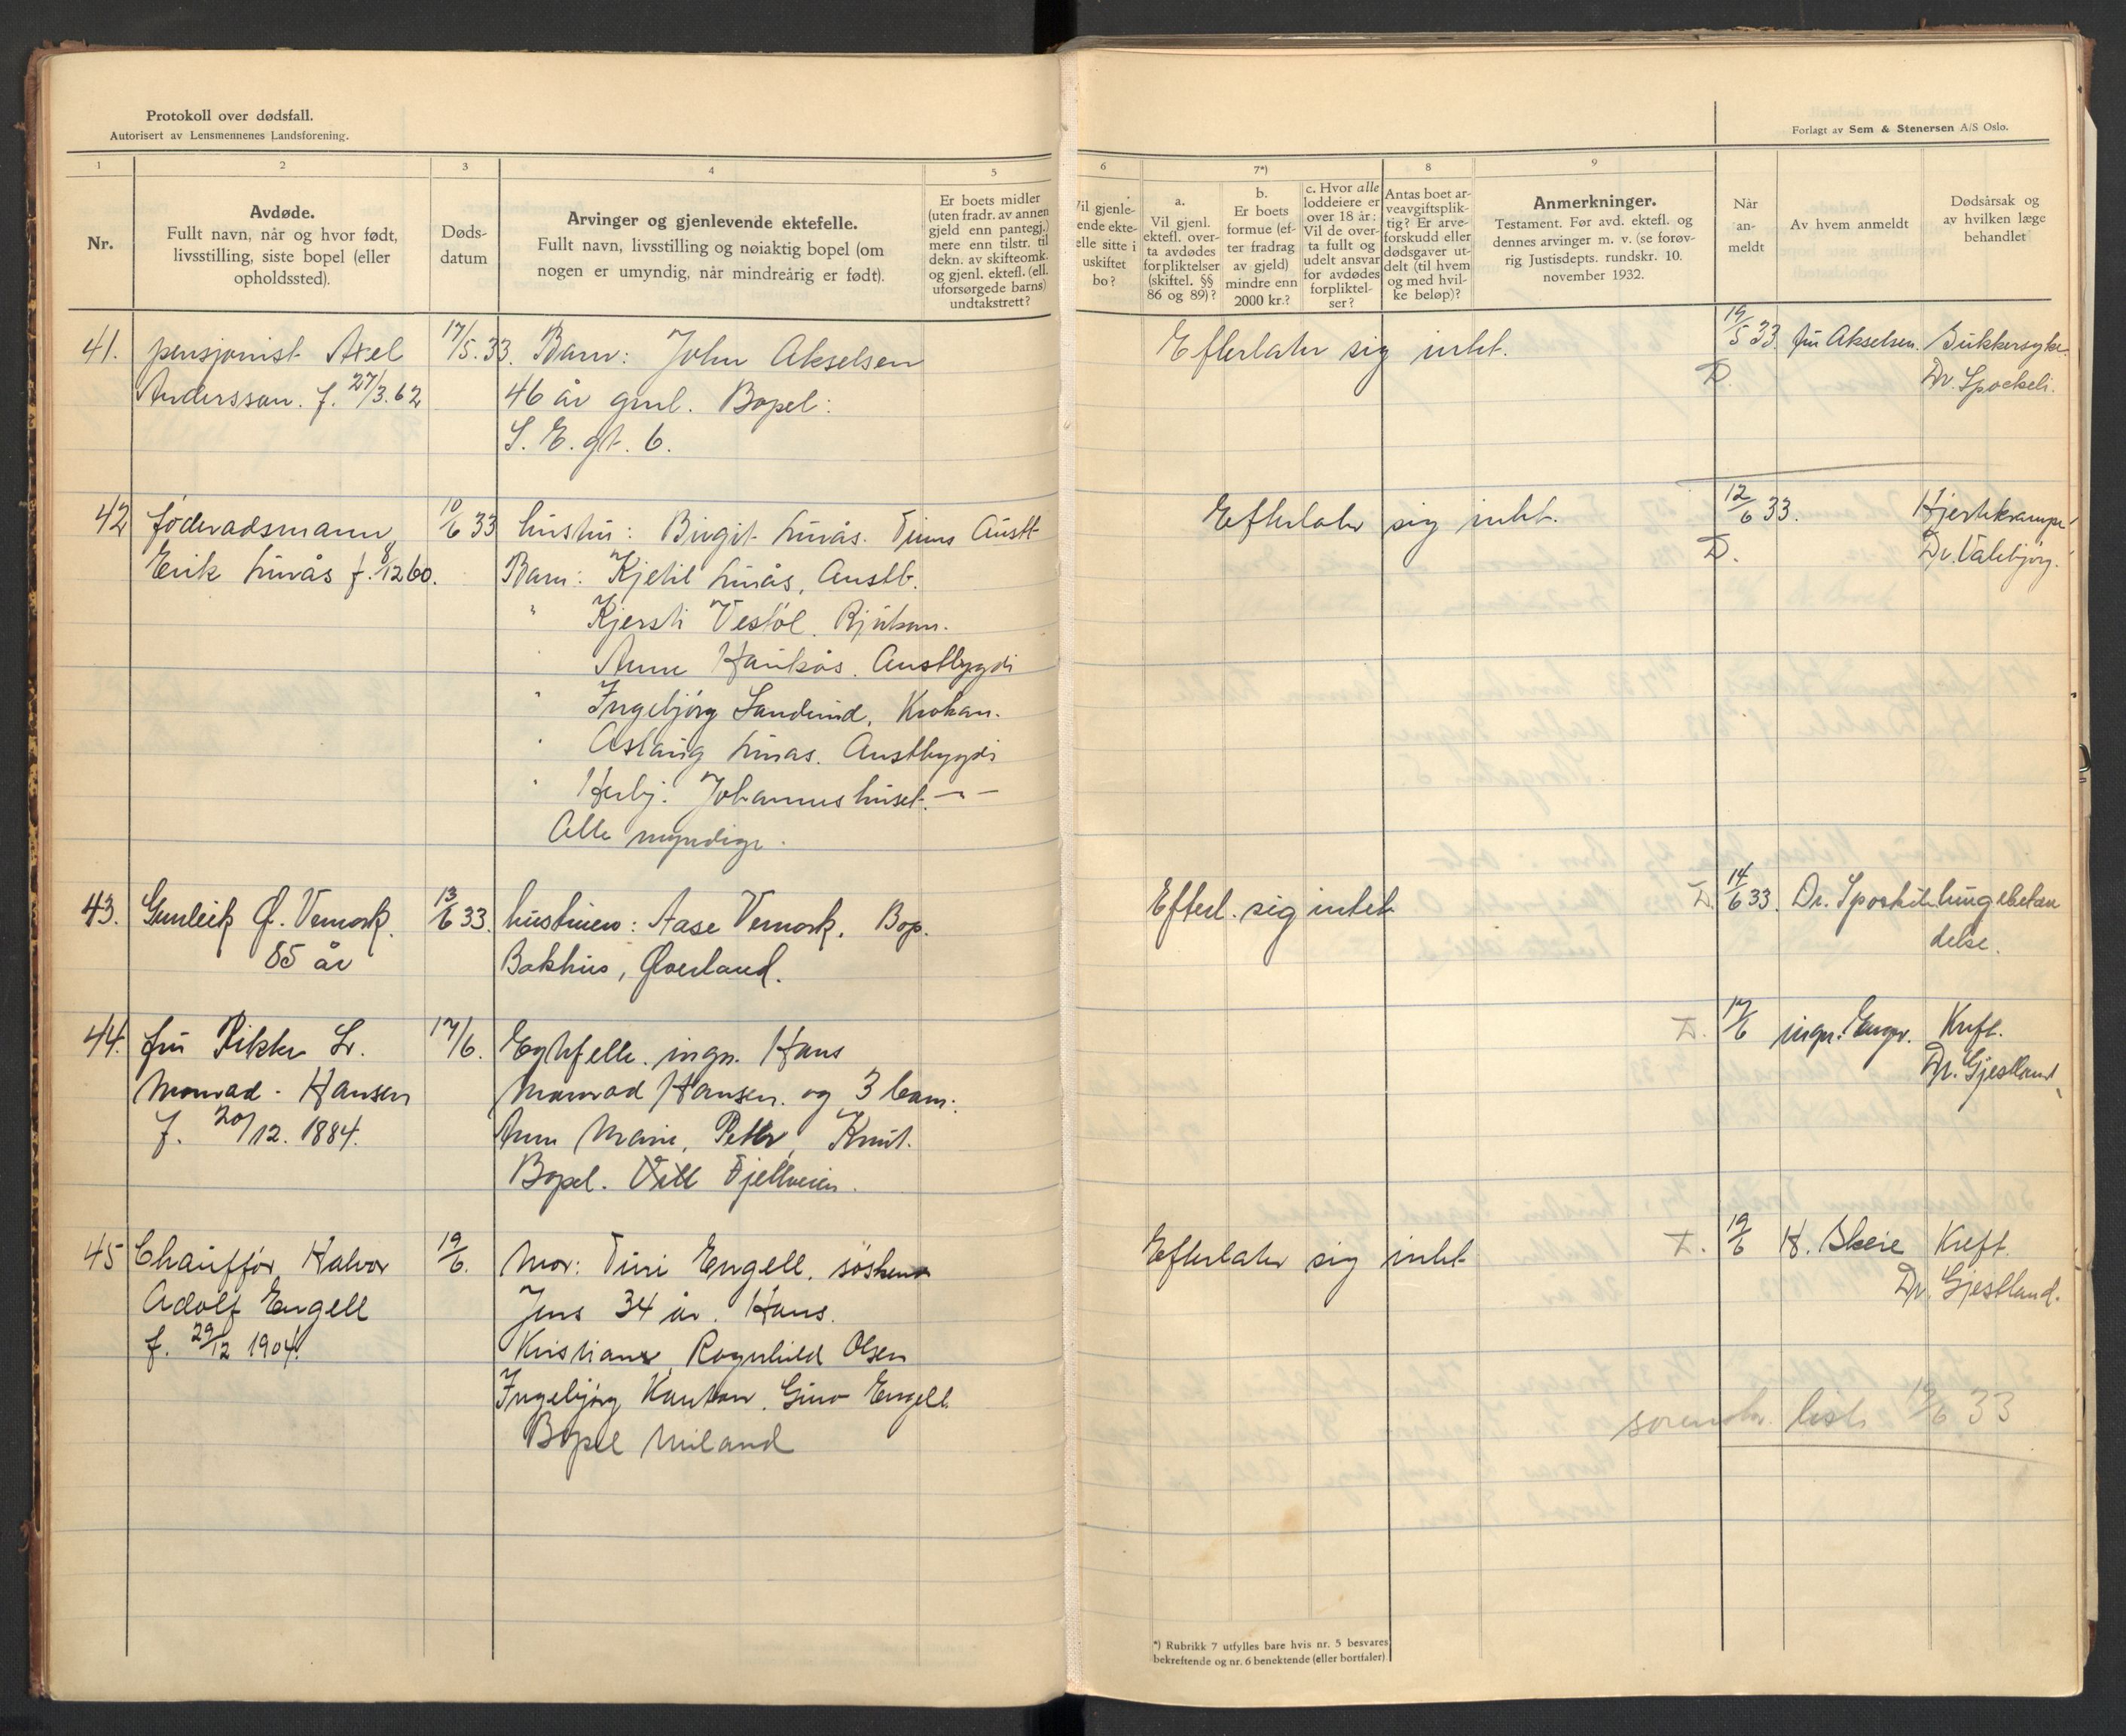 Protokoll over dødsfall.
Autorisert av Lensmennenes Landsforening.
Forlagt av Sem & Stenersen A/S Oslo.
1
2
3
4
5
6
7*)
8
9
Nr.
Avdøde.
Fullt navn, når og hvor født,
livsstilling, siste bopel (eller
opholdssted).
Døds-
datum
Arvinger og gjenlevende ektefelle.
Fullt navn, livsstilling og nøiaktig bopel (om
nogen er umyndig, når mindreårig er født).
Er boets midler
(uten fradr. av annen
gjeld enn pantegj.)
mere enn tilstr. til
dekn. av skifteomk.
og gjenl. ektefl. (ell.
uforsørgede barns)
undtakstrett?
Vil gjenle-
ende ekte-
elle sitte i
uskiftet
bo?
a.
Vil gjenl.
ektefl. over-
ta avdødes
forpliktelser
(skiftel. §§
86 og 89)?
b.
Er boets
formue (ef-
ter fradrag
av gjeld)
mindre enn
2000 kr.?
c. Hvor alle
loddeiere er
over 18 år:
Vil de over-
ta fullt og
udelt ansvar
for avdødes
forpliktel-
ser?
Antas boet ar-
veavgiftsplik-
tig? Er arve-
forskudd eller
dødsgaver ut-
delt (til hvem
og med hvil-
ke beløp)?
Anmerkninger.
Testament. Før avd. ektefl. og
dennes arvinger m. v. (se forøv-
rig Justisdepts. rundskr. 10.
november 1932.
Når
an-
meldt
Av hvem anmeldt
Dødsårsak og
av hvilken læge
behandlet
41. pensjonist Axel 17/5.33. Barn: John Akselsen Efterlater sig intet. 19/5 33. fru Akselsen. Sukkersyke.
Andersson. f. 27/3.62 46 år gml. Bopel: D. Dr.
S. E. gt. 6.
42 föderadsmann 10/6 33 hustru: Birgit Luraas. Austb. Efterlater sig intet. 12/6 33. Hjertekrampe
Erik Lurås f. 8/12 60. Barn: Kjetil Lurås, Austb. D. Dr.
" Kjersti Vestöl. Rjukan.
Anne Haukås. Austbygdi
" Ingebjörg Sandsund, Krokan.
" Aslaug Luras. Austbygdi
" Herbj. Johannushuset. — " —
Alle myndige.
43. Gunleik O. Vemork. 13/6 33. hustruen: Aase Vemork. Bop. Efterl. sig intet D. 14/6 33. Dr. lungebetæn
85 år Bakhus, Øverland. delse.
44. fru Rikke Monrad - Hansen 17/6. Egtefelle. ingn. Hans D. 17/6 ingn. Kreft.
f. 20/12. 1884. Monrad Hansen. og 3 barn: Dr. Gjestland
Anne Marie, Petter, Knut.
Bopel. Fjellveien.
45 Chauffør Halvor 19/6. Mor: Turi Engell. søsken Efterlater sig intet D. 19/6 H. Skeie Kreft.
Adolf Engell Jens 34 år. Hans. Dr. Gjestland.
f. 29/12 1904. Kristiane, Ragnhild Olsen
Ingebjörg Engell.
Bopel Miland
sorenskr. liste 19/6 33
*) Rubrikk 7 utfylles bare hvis nr. 5 besvares
bekreftende og nr. 6 benektende (eller bortfaler)